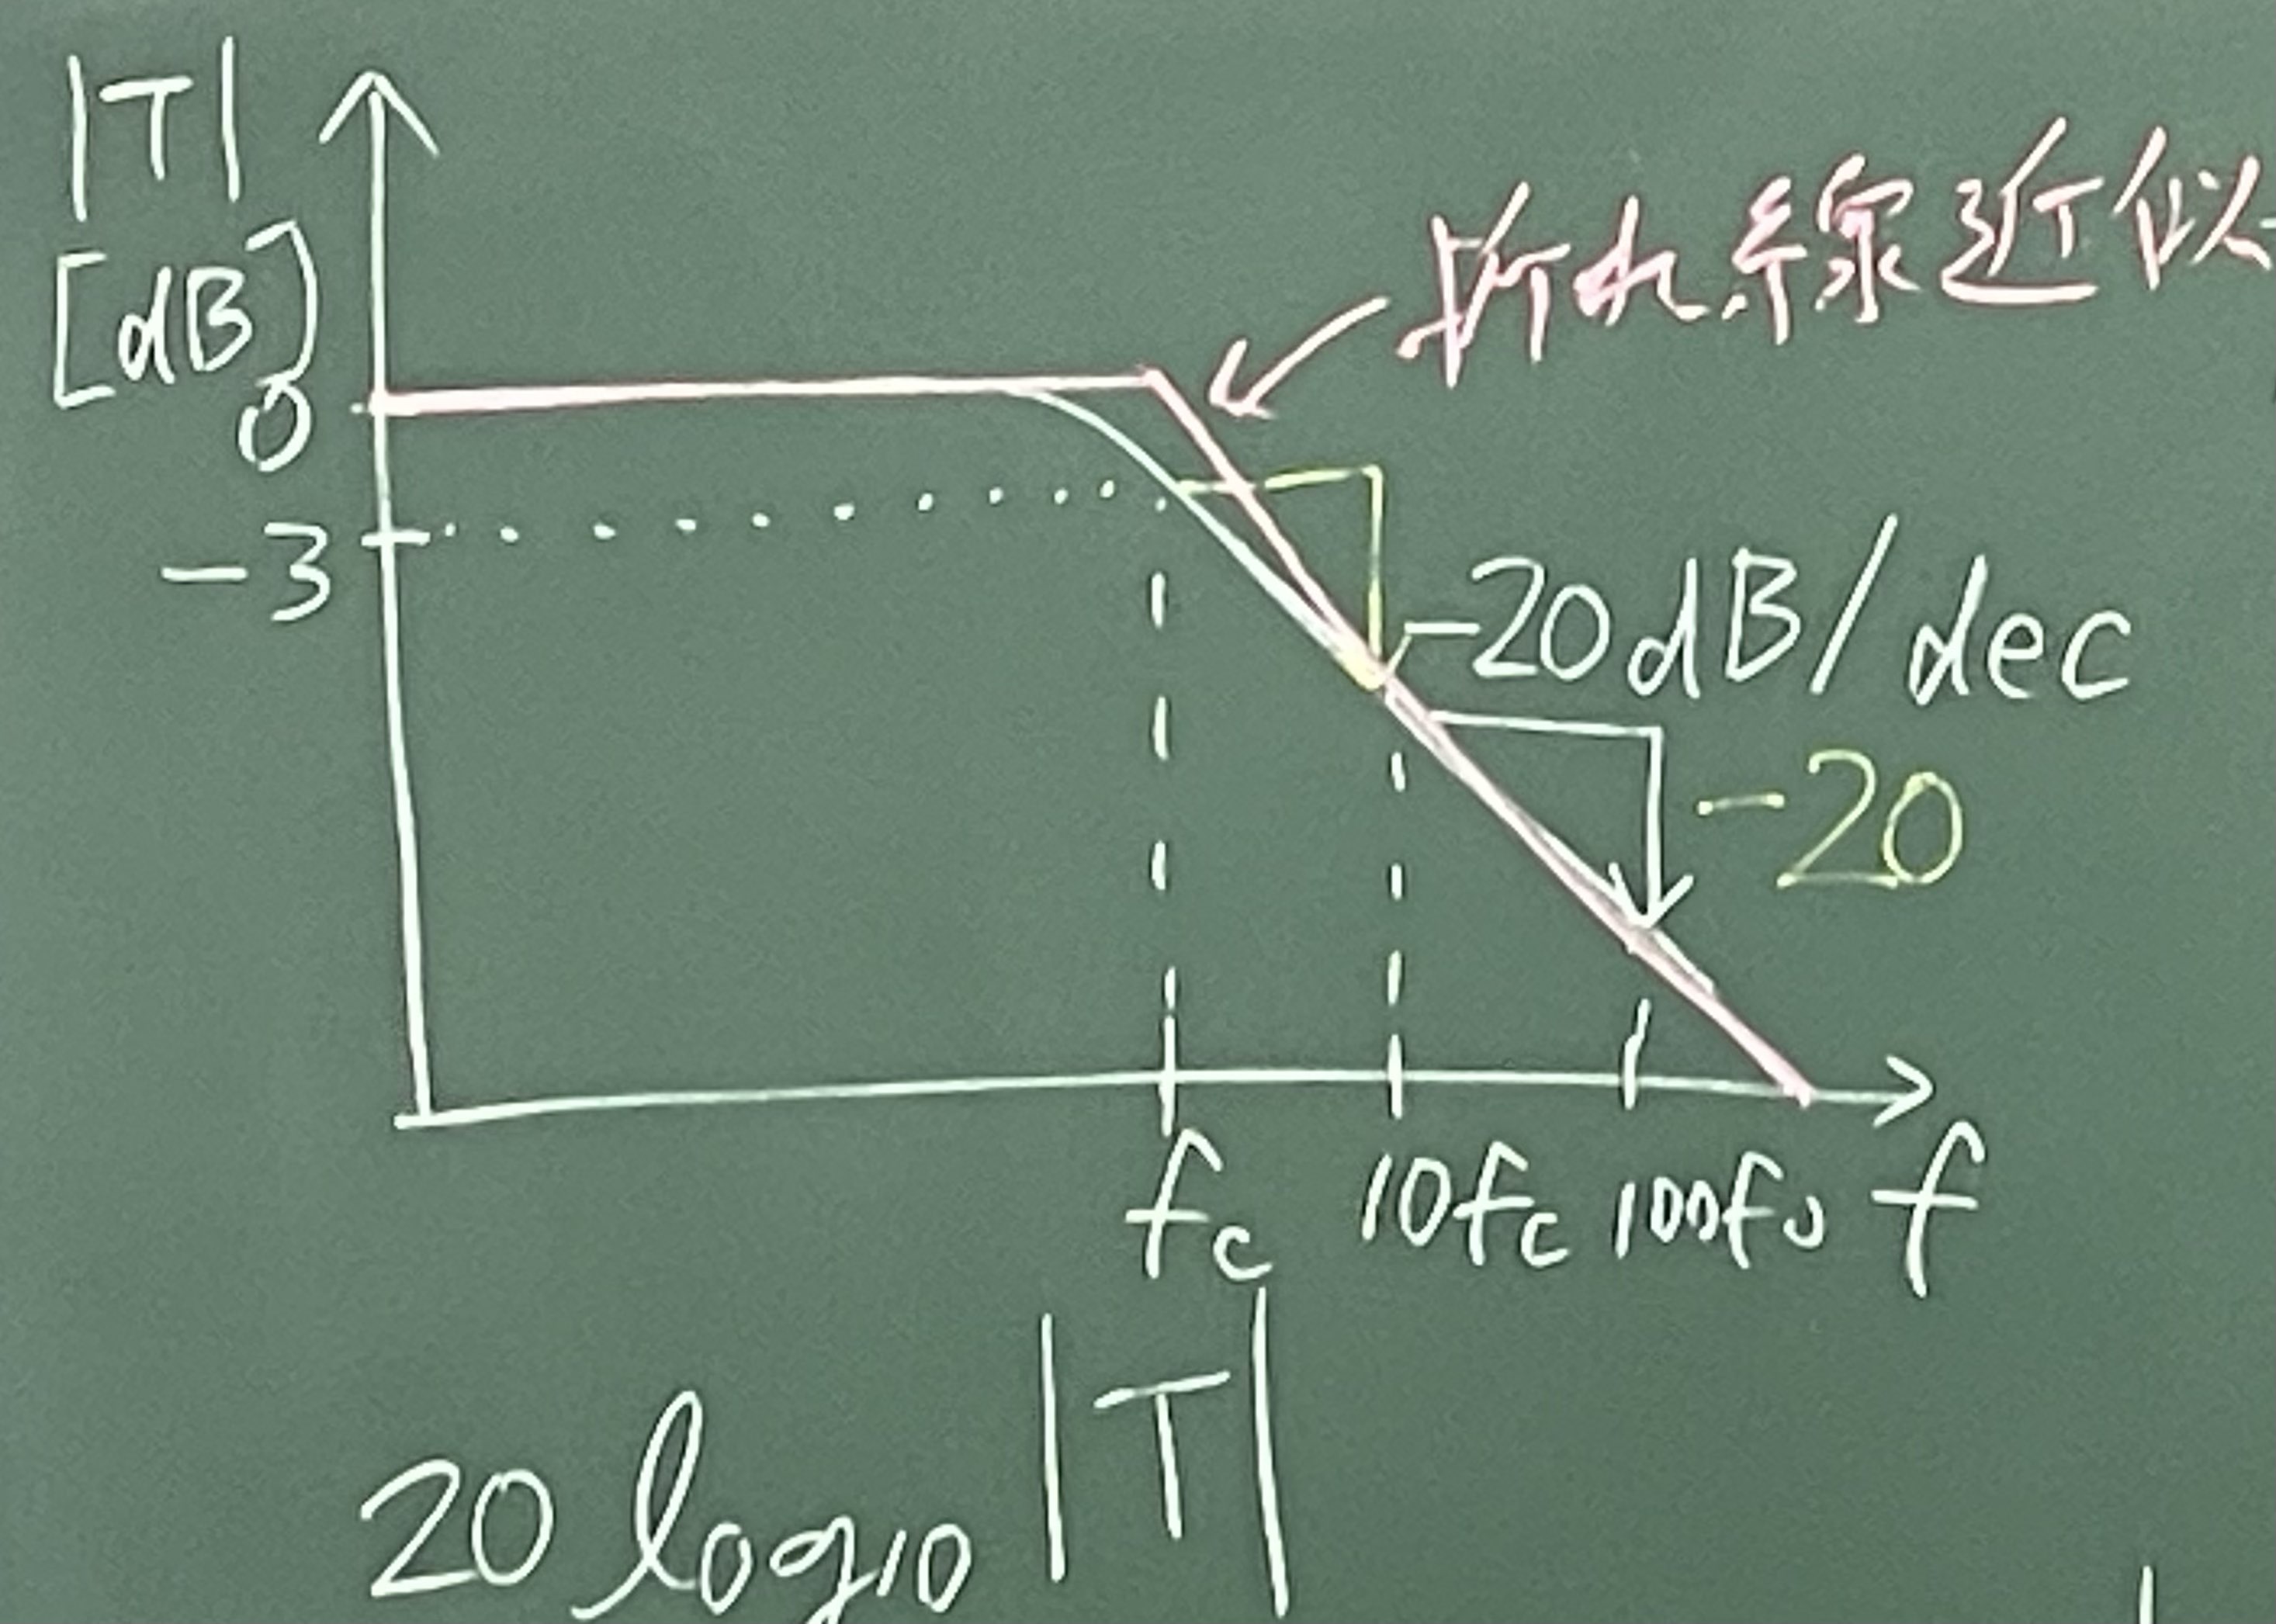 |T|
[dB]
折れ線近似
0
-3
-20dB/dec
-20
fc 10fc 100fc f
20 log10 |T|